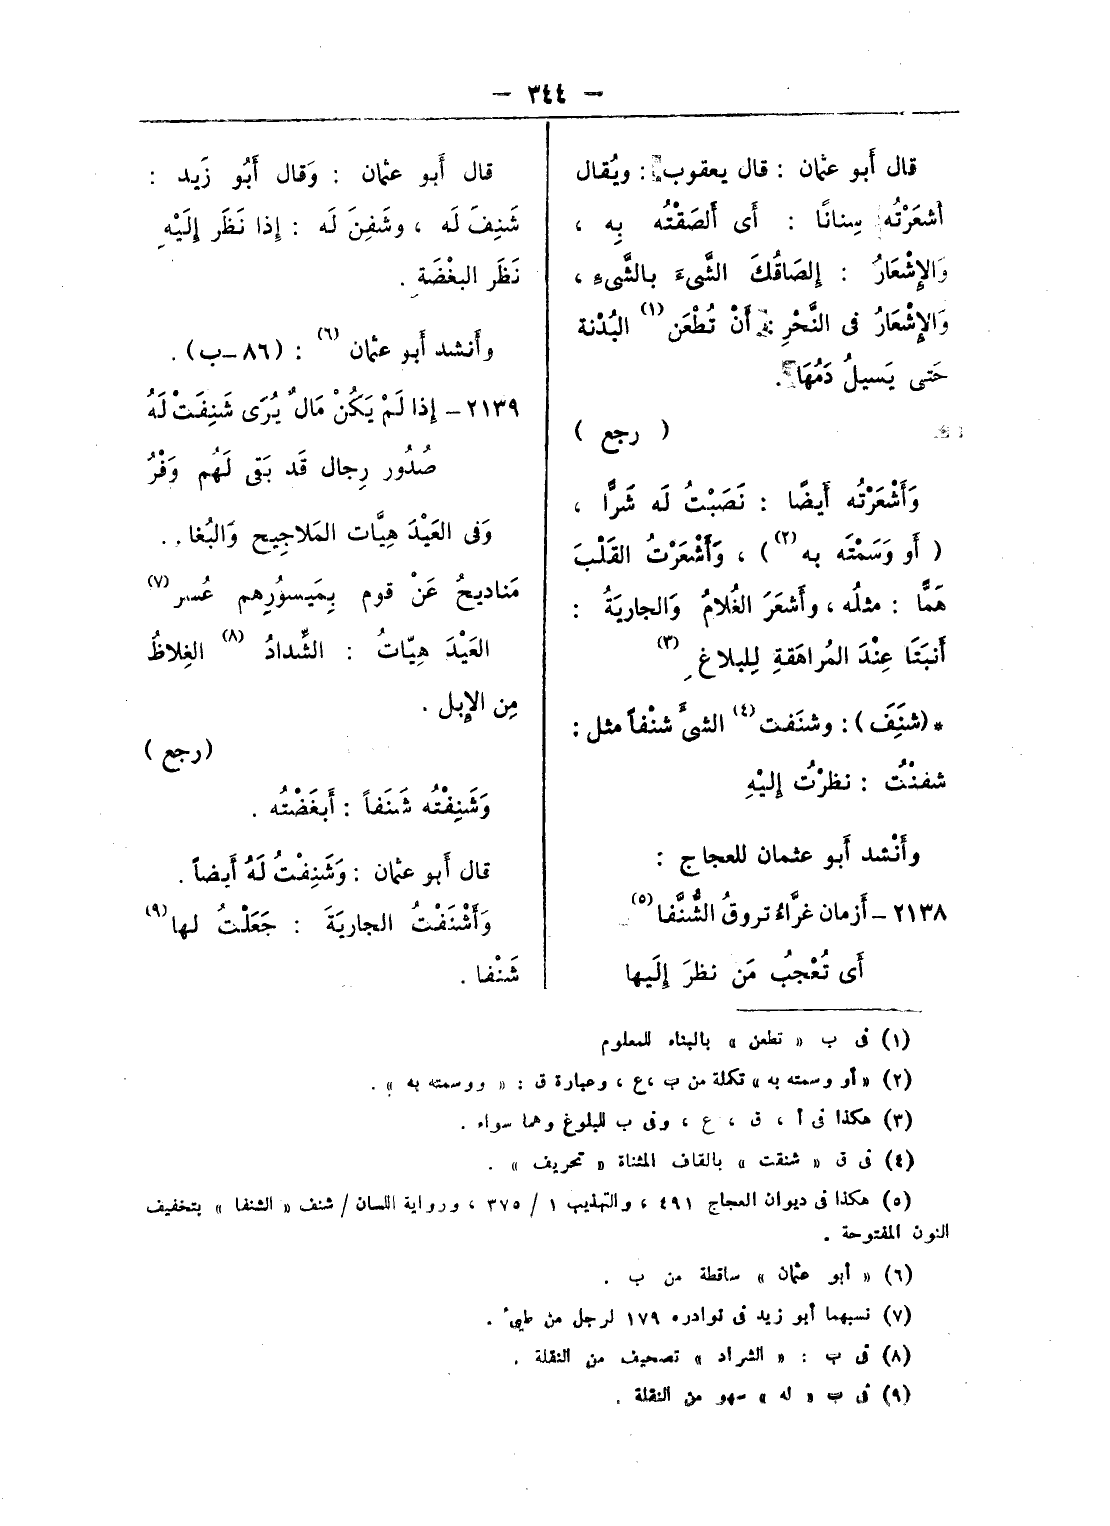 — ٣٤٤ —
قال أَبو عثمان : قال يعقوب : ويُقال
أشعَرْتُه سِنانًا : أَى أَلصَقْتُه بِه ،
وَالإِشْعَارُ : إِلصَاقُكَ الشَّىءَ بالشَّىءِ ،
وَالإِشْعَارُ فى النَّحْرِ : أَنْ تُطْعَن (١) البُدْنة
حَتى يَسيلُ دَمُهَا .
( رجع )
وَأَشْعَرْتُه أَيضًا : نَصَبْتُ لَه شَرًّا ،
( أَو وَسَمْتَه به (٢) ) ، وَأَشْعَرْتُ القَلْبَ
هَمًّا : مثلُه ، وأَشعَرَ الغُلامُ وَالجاريَةُ :
أَنبَتَا عِنْدَ المُراهَقةِ لِلبلاغ (٣)
* (شنَِفَ ) : وشنَفت (٤) الشىَّ شنْفاً مثل :
شفنْتُ : نظرْتُ إِليْهِ
وأَنْشد أَبو عثمان للعجاج :
٢١٣٨ – أَزمان غرَّاءُ تروقُ الشُّنَّفا (٥)
أَى تُعْجِبُ مَن نظرَ إِلَيها
قال أَبو عثمان : وَقال أَبُو زَيد :
شَنِفَ لَه ، وشَفِنَ لَه : إِذا نَظَر إِلَيْهِ
نَظَر البغْضَة .
وأَنشد أَبو عثمان (٦) : (٨٦–ب) .
٢١٣٩ – إِذا لَمْ يَكُنْ مَالٌ يُرَى شَنِفَتْ لَهُ
صُدُور رِجال قَد بَقى لَهُم وَفْرُ
وَفى العَيْدَ هِيَّات المَلاجيح وَالبُغا ..
مَناديحُ عَنْ قوم بِمَيسوُرِهم عُسر (٧)
العَيْدَ هِيّاتُ : الشِّدادُ (٨) الغِلاظُ
مِن الإِبل .
(رجع )
وَشَنِفْتُه شَنَفاً : أَبغَضْتُه .
قال أَبو عثمان : وَشَنِفْتُ لَهُ أَيضاً .
وَأَشْنَفْتُ الجاريَةَ : جَعَلْتُ لها (٩)
شَنْفا .
(١) فى ب « تطعن » بالبناء للمعلوم
(٢) « أو وسمته به » تكملة من ب ،ع ، وعبارة ق : « ووسمته به » .
(٣) هكذا فى أ ، ق ، ع ، وفى ب للبلوغ وهما سواء .
(٤) فى ق « شنقت » بالقاف المثناة « تحريف » .
(٥) هكذا فى ديوان العجاج ٤٩١ ، والتهذيب ١ / ٣٧٥ ، ورواية اللسان / شنف « الشنفا » بتخفيف
النون المفتوحة .
(٦) « أبو عثمان » ساقطة من ب .
(٧) نسبهما أبو زيد فى نوادره ١٧٩ لرجل من طيىء .
(٨) فى ب : « الشراد » تصحيف من النقلة .
(٩) فى ب « له » سهو من النقلة .